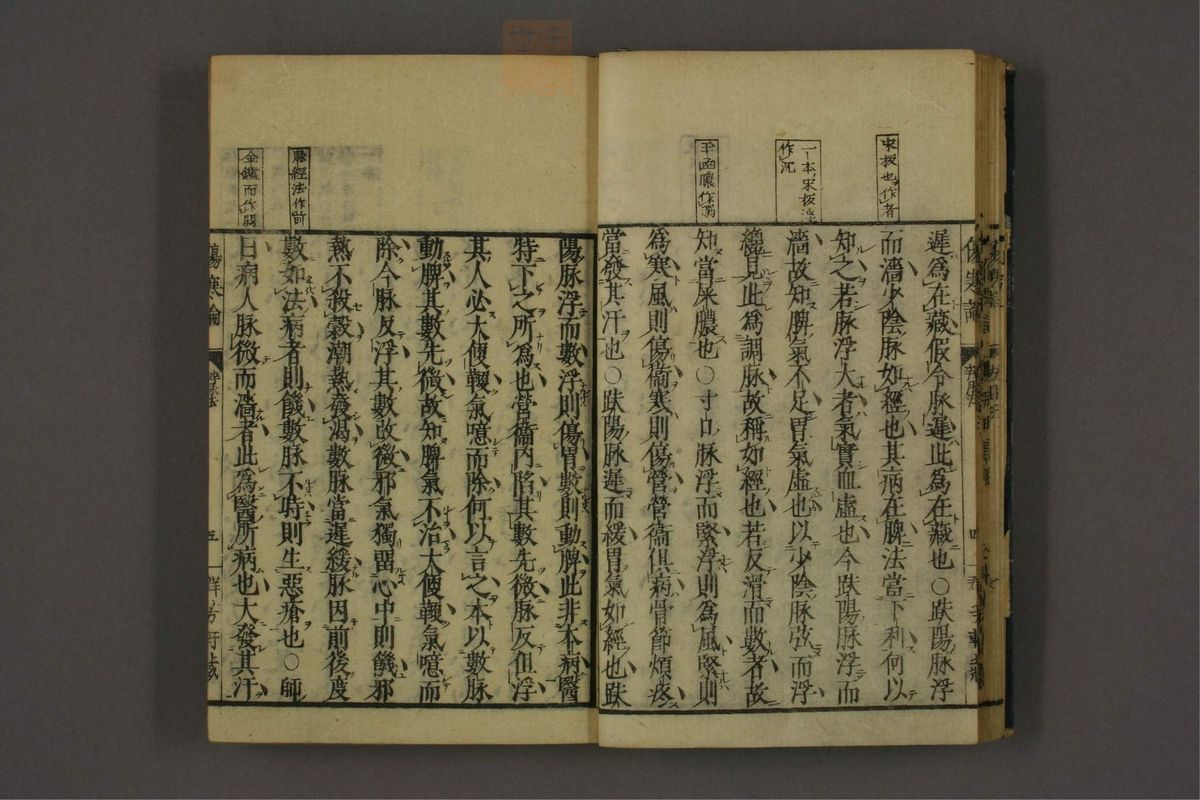 宋板也作者
一本宋板浮
作沉
玉函膿作溺
遲爲在藏假令脉遲此爲在藏也〇趺陽脉浮
而濇少陰脉如經也其病在脾法當下利何以
知之若脉浮大者氣實血虛也今趺陽脉浮而
濇故知脾氣不足胃氣虛也以少陰脉弦而浮
纔見此爲調脉故稱如經也若反滑而數者故
知當屎膿也〇寸口脉浮而緊浮則爲風緊則
爲寒風則傷衞寒則傷營營衞俱病骨節煩疼
當發其汗也〇趺陽脉遲而緩胃氣如經也趺
脉經法作前
金鑑而作弱
陽脉浮而數浮則傷胃數則動脾此非本病醫
特下之所爲也營衞內陷其數先微脉反但浮
其人必大便鞕氣噫而除何以言之本以數脉
動脾其數先微故知脾氣不治大便鞕氣噫而
除今脉反浮其數改微邪氣獨留心中則饑邪
熱不殺穀潮熱發渴數脉當遲緩脉因前後度
數如法病者則饑數脉不時則生惡瘡也〇師
曰病人脉微而濇者此爲醫所病也大發其汗
傷寒論
五